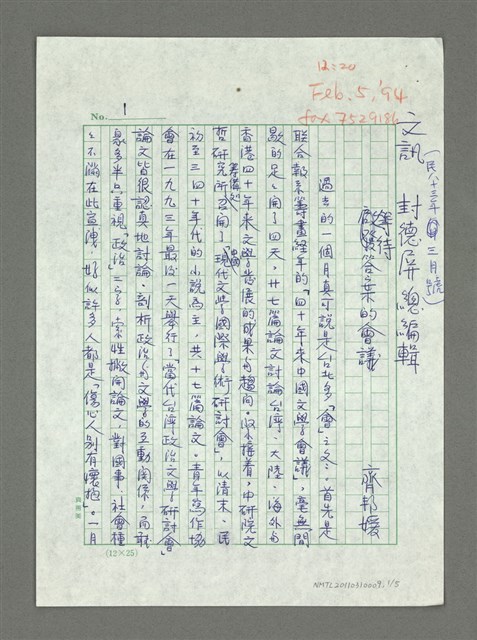 12:20
Feb. 5, '94
fax 7529186
No. 1
文訊 封德屏總編輯
(民八十三年三月號)
等待答案的會議
齊邦媛
過去的一個月真可說是台北多「會」之冬。首先是
聯合報系籌畫經年的「四十年來中國文學會議」,毫無間
歇的足足開了四天,廿七篇論文討論台灣、大陸、海外與
香港四十年來文學發展的成果與趨向。緊接着,中研院文
哲研究所召開了「中國現代文學國際學術研討會」,以清末、民
初至三四十年代的小說為主,共十七篇論文。青年寫作協
會在一九九三年最後一天舉行了「當代台灣政治文學研討會」
論文皆很認真地討論、剖析政治與文學的互動關係,而聽
眾多半只重視「政治」二字,索性撇開論文,對國事、社會種
種不滿在此宣洩,好似許多人都是「傷心人別有懷抱」。一月
(12×25)
NMTL20110310009, 1/5